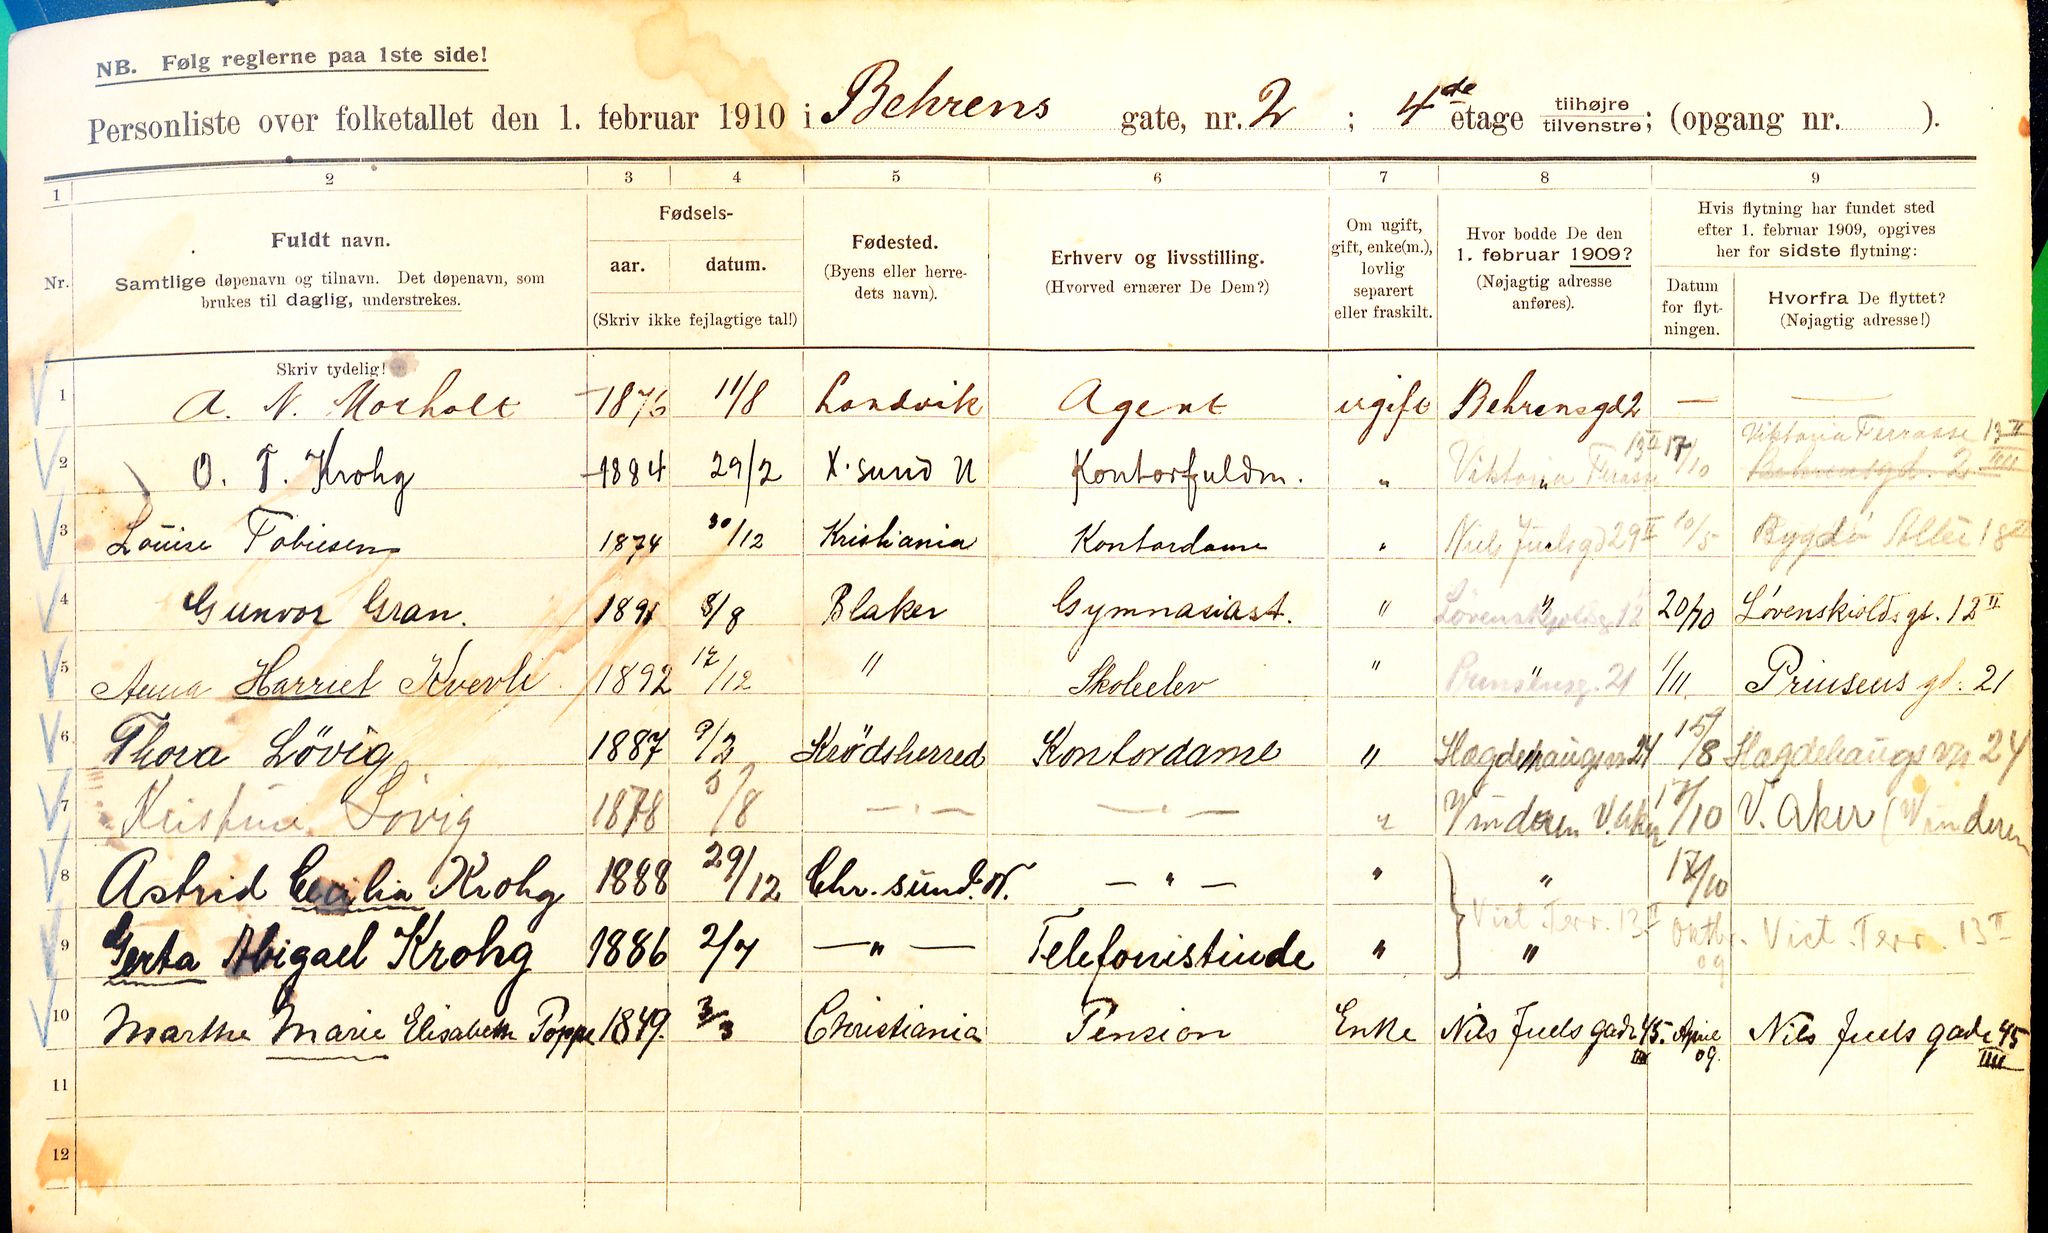 NB. Følg reglerne paa 1ste side!
Personliste over folketallet den 1. februar 1910 i Behrens gate, nr. 2 ; 4de etage tilhøjre tilvenstre; (opgang nr. ).
1 2 3 4 5 6 7 8 9
Nr.
Fuldt navn.
Samtlige døpenavn og tilnavn. Det døpenavn, som
brukes til daglig, understrekes.
Skriv tydelig!
Fødsels-
aar. datum.
(Skriv ikke fejlagtige tal!)
Fødested.
(Byens eller herre-
dets navn).
Erhverv og livsstilling.
(Hvorved ernærer De Dem?)
Om ugift,
gift, enke(m.),
lovlig
separert
eller fraskilt.
Hvor bodde De den
1. februar 1909?
(Nøjagtig adresse
anføres).
Hvis flytning har fundet sted
efter 1. februar 1909, opgives
her for sidste flytning:
Datum
for flyt-
ningen.
Hvorfra De flyttet?
(Nøjagtig adresse!)
1 A. N. Morholt 1876 11/8 Landvik Agent ugift Behrensgd 2 — —
2 O. T. Krohg 1884 29/2 X.sund N Kontorfuldm. " Viktoria Terasse 13 II 17/10 Viktoria Terrasse 13 II Behrensgd. 2 IIII
3 Louise Tobiesen 1874 30/12 Kristiania Kontordame " Niels Juelsgd 29 II 10/5 Bygdö Allée 18 II
4 Gunvor Gran. 1891 8/8 Blaker Gymnasiast. " Løvenskjoldsg 12 20/10 Løvenskiolds gt. 12 II
5 Anna Harriet Kvevli 1892 17/12 " Skoleelev " Prinsensg. 21 1/11 Prinsens gd. 21
6 Thora Lövig 1887 9/2 Krødsherred Kontordame " Hægdehaugsvn 24 15/8 Hægdehaugsvn 24
7 Kristine Lövig 1878 5/8 — " — — " — " Vinderen V. Aker 17/10 V. Aker (Vinderen
8 Astrid Cecilia Krohg 1888 29/12 Chr.sund. N. — " — " " 17/10
Vict. Terr. 13 II
9 Gerta Abigael Krohg 1886 2/7 — " — Telefonistinde " " Oktbr. 09 Vict. Terr. 13 II
10 Marthe Marie Elisabeth Poppe 1849. 3/3 Christiania Pension Enke Nils Juels gade 45. IIII April 09. Nils Juels gade 45 IIII
11
12